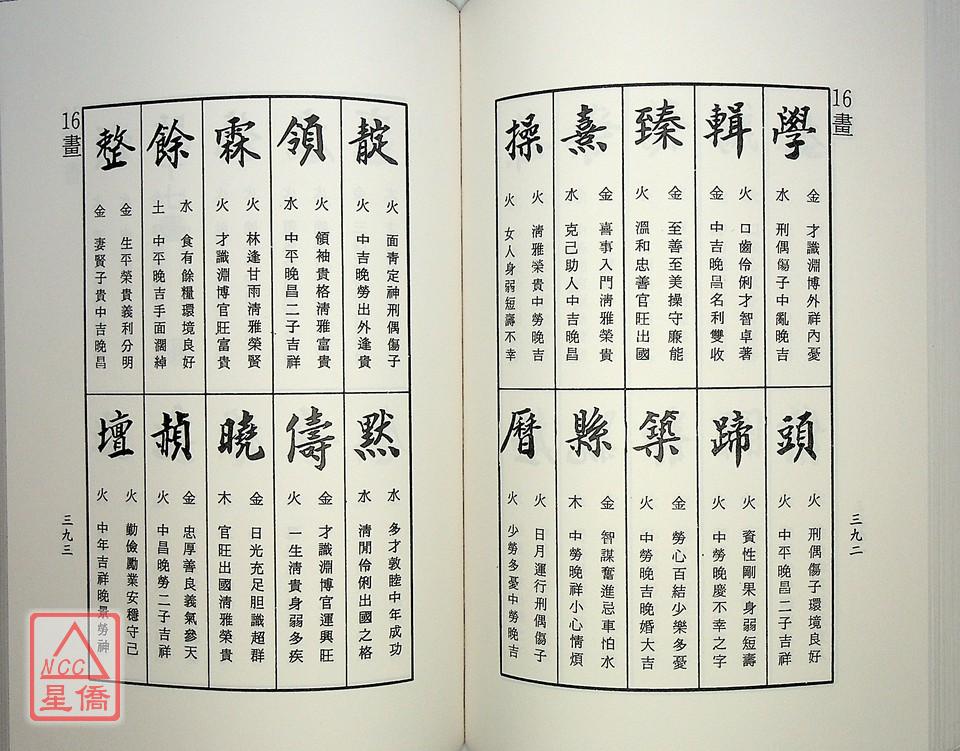 16畫
學
金 才識淵博外祥內憂
水 刑偶傷子中亂晚吉
輯
火 口齒伶俐才智卓著
金 中吉晚昌名利雙收
臻
金 至善至美操守廉能
火 溫和忠善官旺出國
熹
金 喜事入門清雅榮貴
水 克己助人中吉晚昌
操
火 清雅榮貴中勞晚吉
火 女人身弱短壽不幸
頭
火 刑偶傷子環境良好
火 中平晚昌二子吉祥
蹄
火 資性剛果身弱短壽
火 中勞晚慶不幸之字
築
金 勞心百結少樂多憂
火 中勞晚吉晚婚大吉
縣
金 智謀奮進忌車怕水
木 中勞晚祥小心情煩
曆
火 日月運行刑偶傷子
火 少勞多憂中勞晚吉
三九二
16畫
靛
火 面青定神刑偶傷子
火 中吉晚勞出外逢貴
領
火 領袖貴格清雅富貴
水 中平晚昌二子吉祥
霖
火 林逢甘雨清雅榮賢
火 才識淵博官旺富貴
餘
水 食有餘糧環境良好
土 中平晚吉手面濶綽
整
金 生平榮貴義利分明
金 妻賢子貴中吉晚昌
默
水 多才敦睦中年成功
水 清閒伶俐出國之格
儔
金 才識淵博官運興旺
火 一生清貴身弱多疾
曉
金 日光充足胆識超群
木 官旺出國清雅榮貴
赬
金 忠厚善良義氣參天
火 中昌晚勞二子吉祥
壇
火 勤儉勵業安穩守己
火 中年吉祥晚景勞神
三九三
NCC
星僑